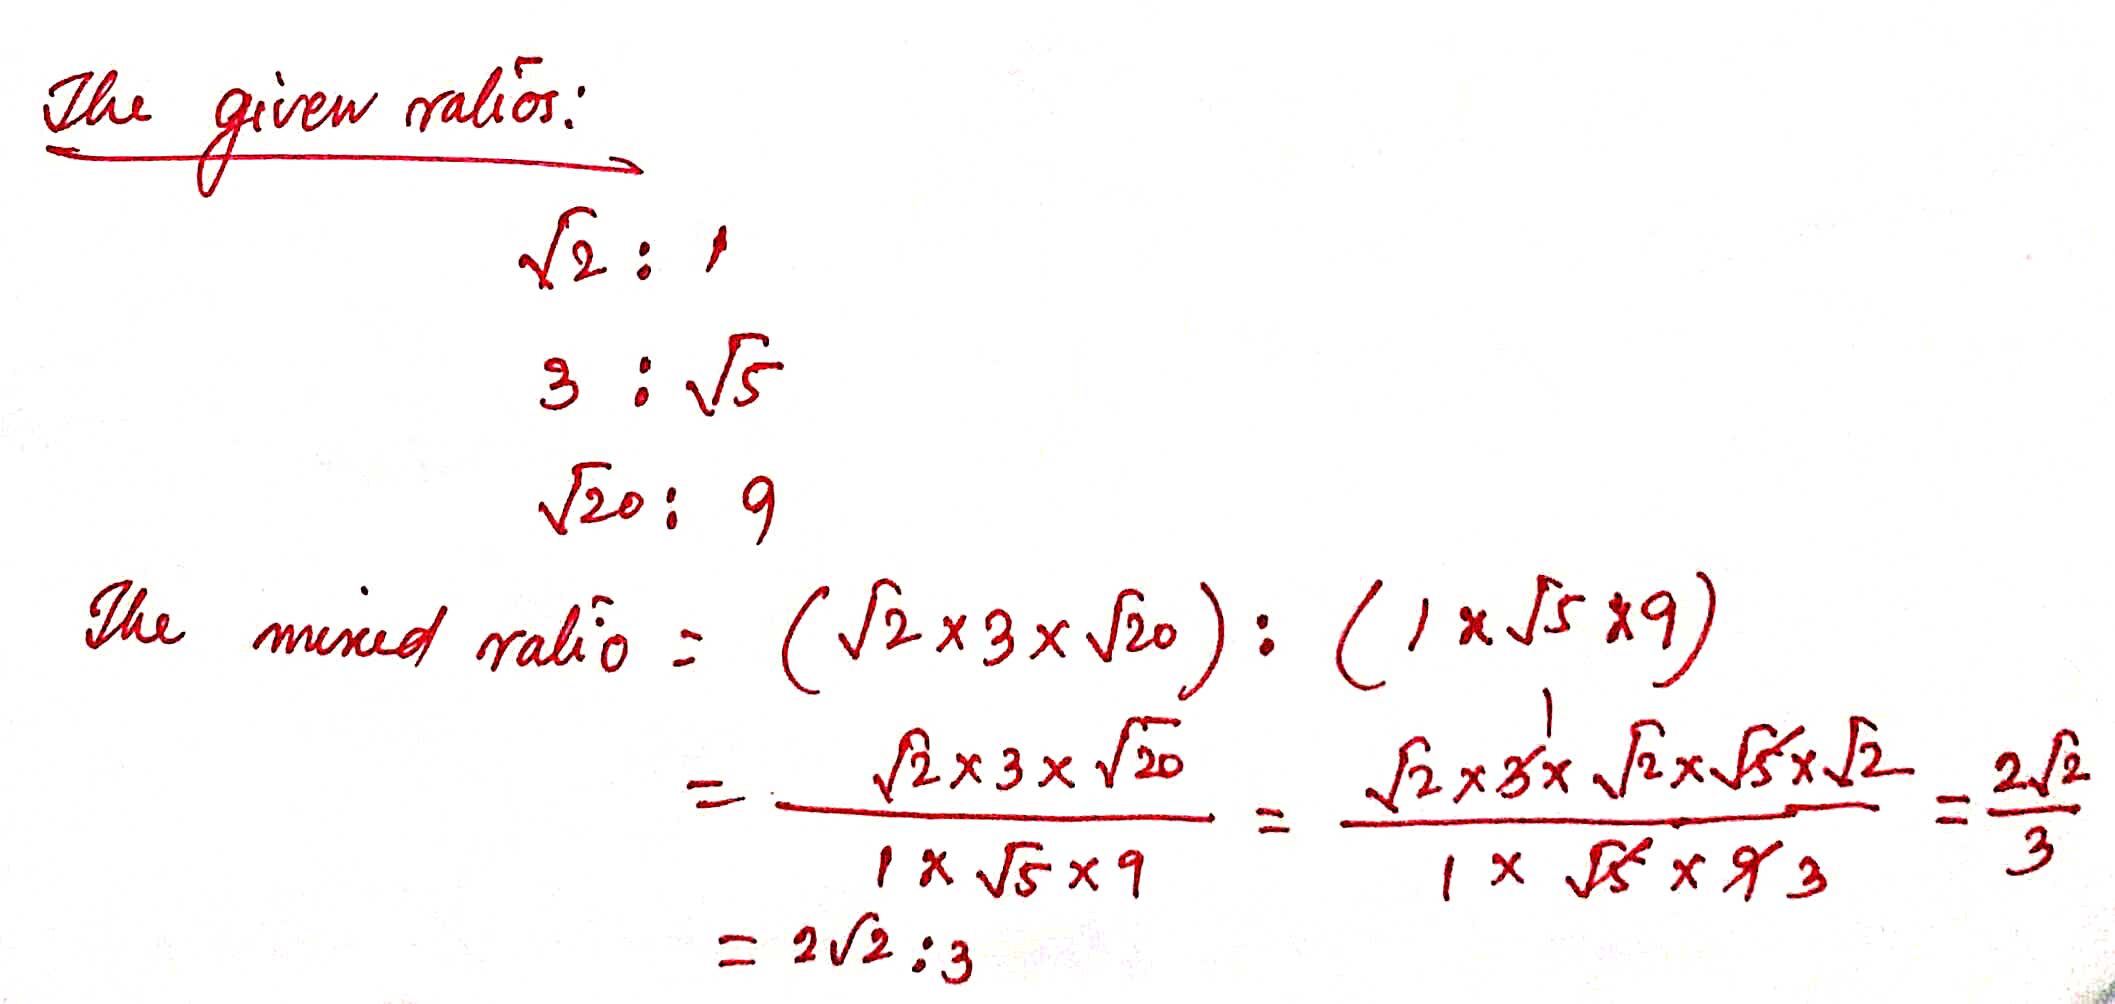 The given ratios:
√2 : 1
3 : √5
√20 : 9
The mixed ratio = (√2 × 3 × √20) : (1 × √5 × 9)
= √2 × 3 × √20 / 1 × √5 × 9 = √2 × 3 × √2 × √5 × √2 / 1 × √5 × 9 3 = 2√2 / 3
1
= 2√2 : 3